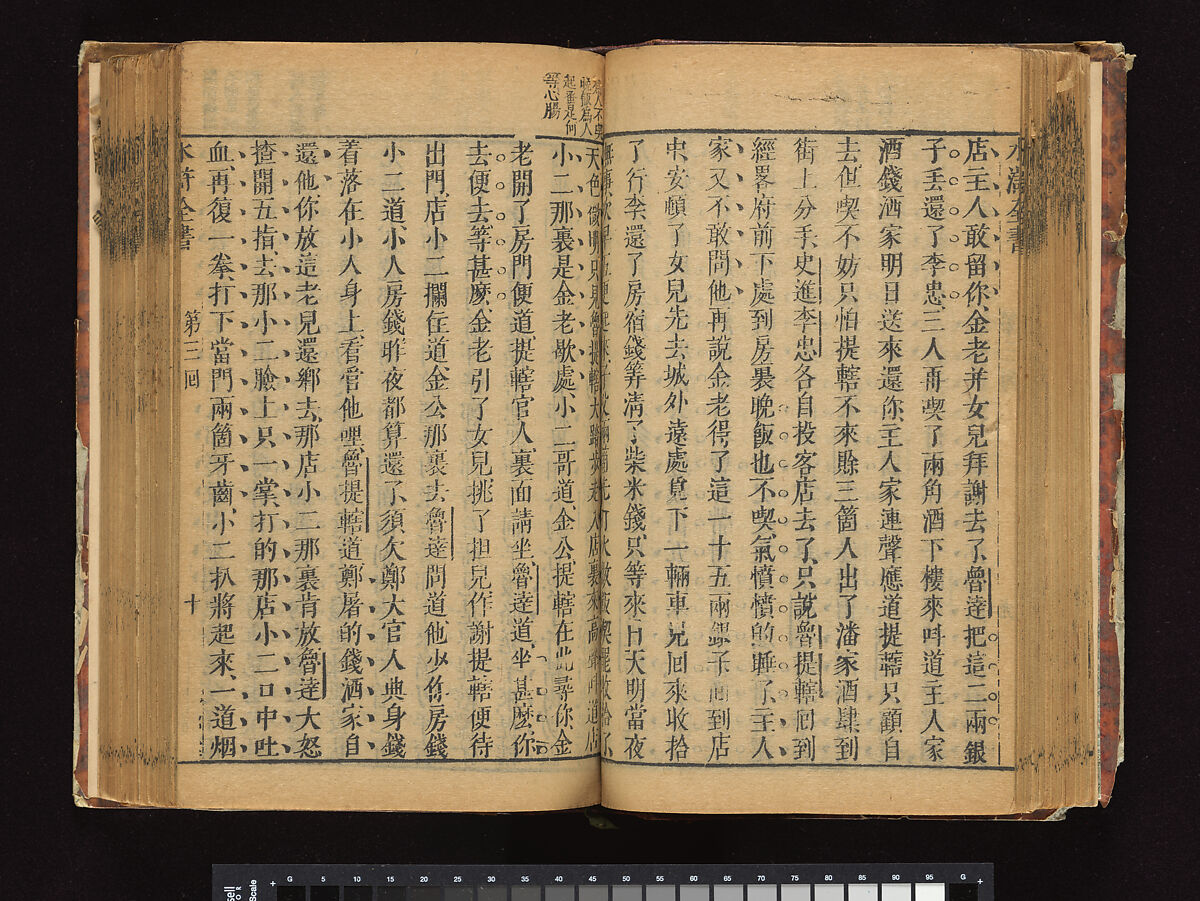 水滸全書
店主人敢留你、金老并女兒拜謝去了、魯達把這二兩銀
子丢還了李忠、三人再喫了兩角酒下樓來呌道主人家
酒錢洒家明日送來還你、主人家連聲應道提轄只顧自
去但喫不妨只怕提轄不來賒三箇人出了潘家酒肆到
街上分手、史進李忠各自投客店去了、只說魯提轄回到
經畧府前下處到房裏晚飯也不喫、氣憤憤的睡了、主人
家又不敢問他再說金老得了這一十五兩銀子回到店
中、安頓了女兒先去城外遠處覓下一輛車兒回來收拾
了行李、還了房宿錢筭清了柴米錢、只等來日天明當夜
天色微明只見魯提轄大踏步走入店裏來高聲呌道店
小二那裏是金老歇處、小二哥道、金公、提轄在此尋你金
老開了房門便道、提轄官人、裏面請坐、魯達道、坐甚麽你
去便去等甚麽、金老引了女兒挑了担兒作謝提轄便待
出門、店小二攔住道、金公那裏去魯達問道、他少你房錢
小二道、小人房錢、昨夜都算還了、須欠鄭大官人典身錢
着落在小人身上、看管他哩、魯提轄道鄭屠的錢洒家自
還他你放這老兒還鄉去、那店小二那裏肯放魯達大怒
揸開五指、去那小二臉上只一掌、打的那店小二口中吐
血、再復一拳、打下當門兩箇牙齒、小二扒將起來、一道烟
水滸全書
第三回
十
晚飯爲人
起番是何
等心腸